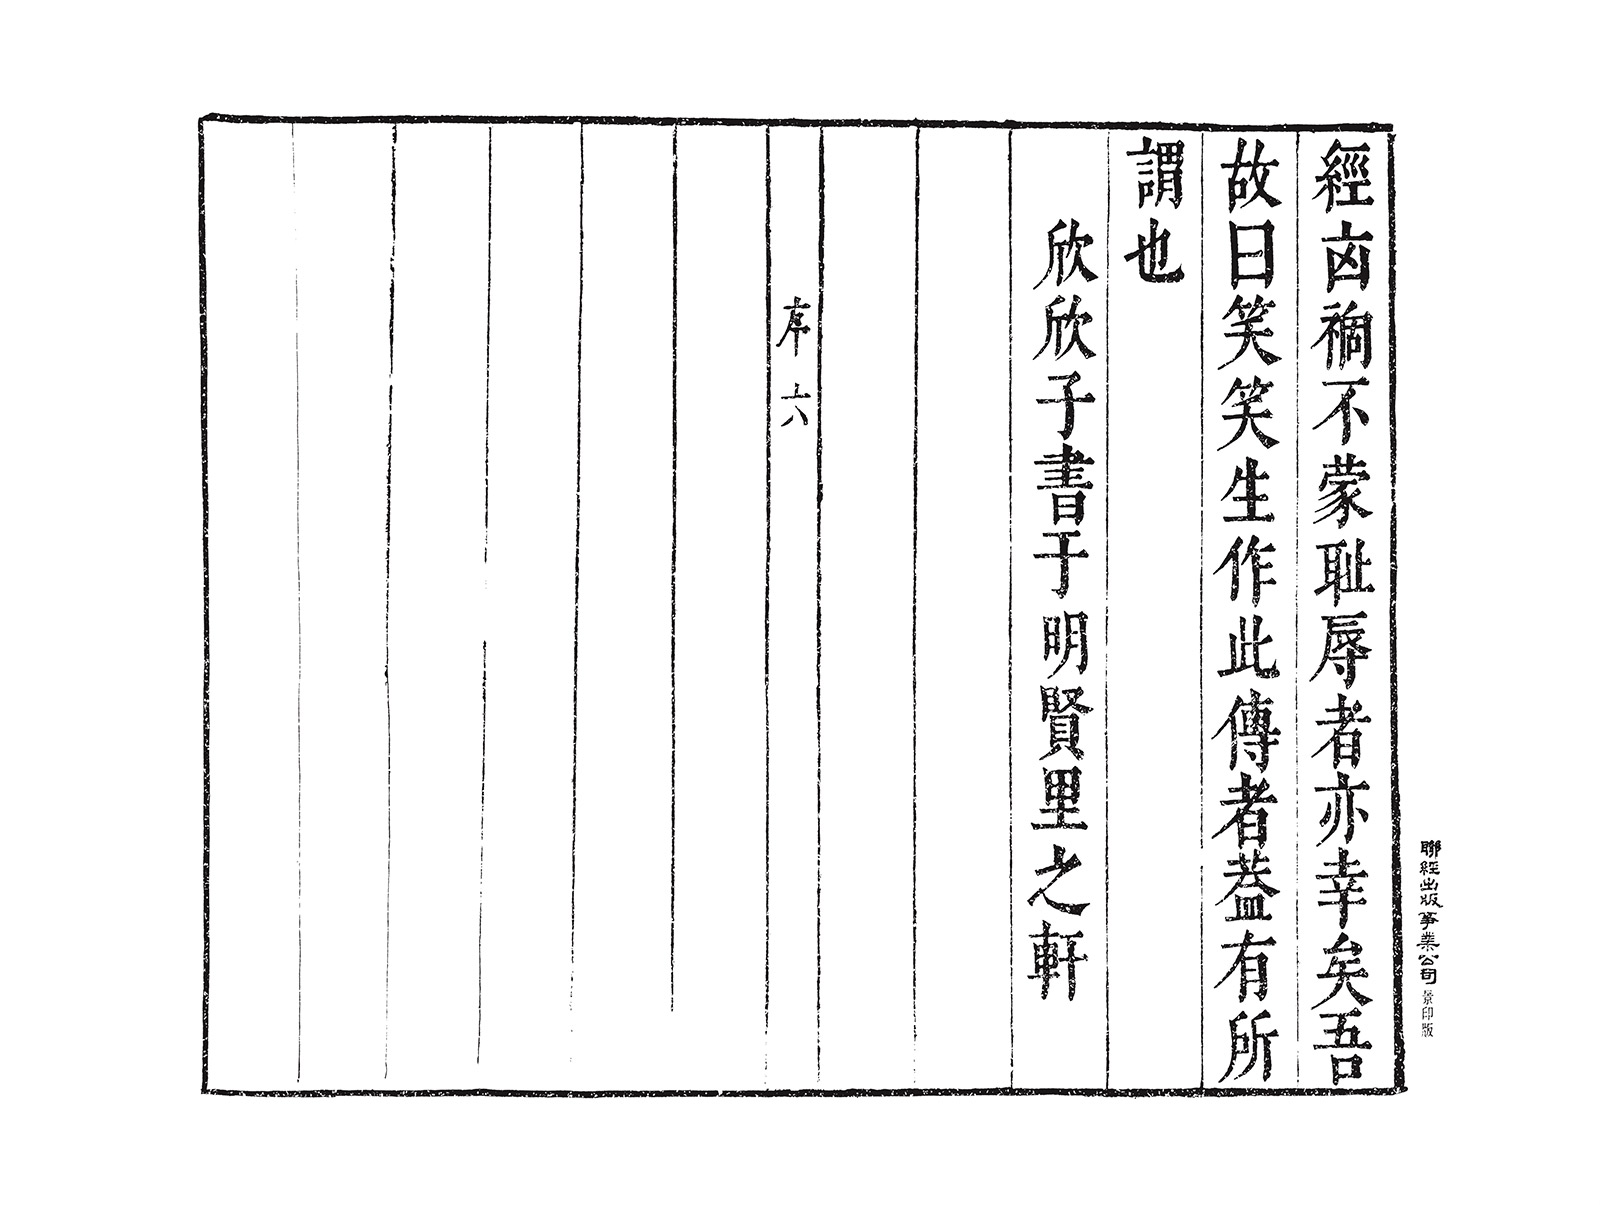 經凶禍不蒙耻辱者亦幸矣吾
故曰笑笑生作此傳者葢有所
謂也
欣欣子書于明賢里之軒
序 六
聯經出版事業公司景印版